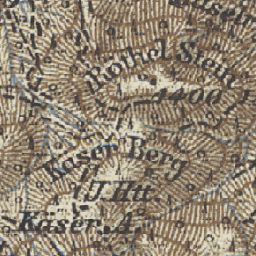 Kaser
Röthel Stein
1400
Kaser Berg
J. Htt.
Kaser. A.